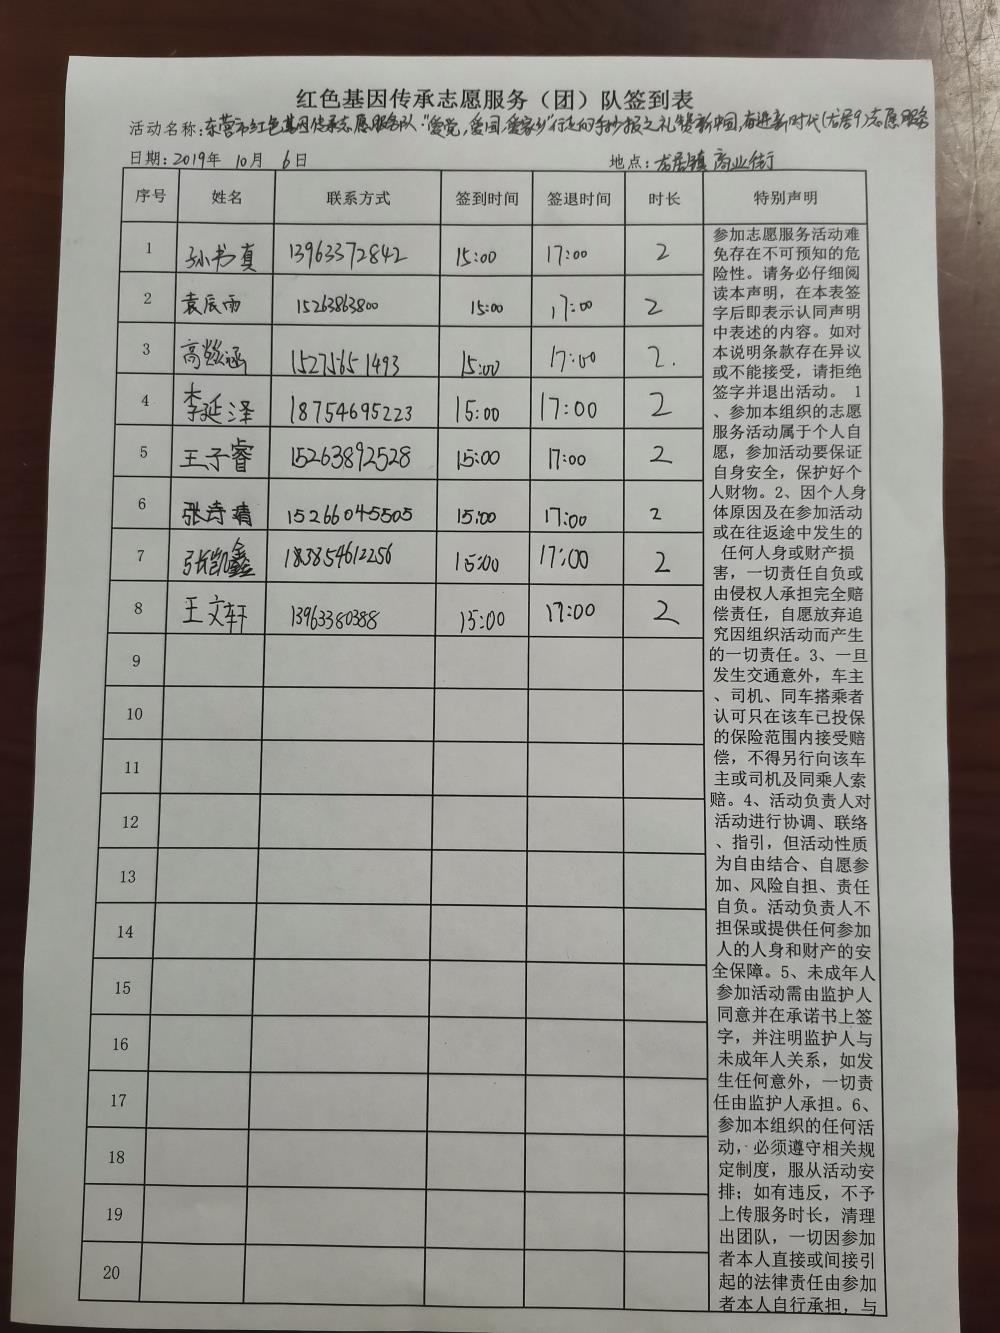 红色基因传承志愿服务（团）队签到表
活动名称:东营市红色基因传承志愿服务队:"爱党,爱国,爱家乡"行走的手抄报之礼赞新中国,奋进新时代(龙居9)志愿服务
日期:2019年 10月 6日 地点:龙居镇商业街
序号 姓名 联系方式 签到时间 签退时间 时长 特别声明
1 孙书真 13963372842 15:00 17:00 2
2 袁辰雨 15263863800 15:00 17:00 2
3 高 涵 15275651493 15:00 17:00 2.
4 李延泽 18754695223 15:00 17:00 2
5 王子睿 15263892528 15:00 17:00 2
6 张诗晴 15266045505 15:00 17:00 2
7 张凯鑫 183854612256 15:00 17:00 2
8 王文轩 13963380388 15:00 17:00 2
9
10
11
12
13
14
15
16
17
18
19
20
参加志愿服务活动难
免存在不可预知的危
险性。请务必仔细阅
读本声明，在本表签
字后即表示认同声明
中表述的内容。如对
本说明条款存在异议
或不能接受，请拒绝
签字并退出活动。 1
、参加本组织的志愿
服务活动属于个人自
愿，参加活动要保证
自身安全，保护好个
人财物。2、因个人身
体原因及在参加活动
或在往返途中发生的
任何人身或财产损
害，一切责任自负或
由侵权人承担完全赔
偿责任，自愿放弃追
究因组织活动而产生
的一切责任。3、一旦
发生交通意外，车主
、司机、同车搭乘者
认可只在该车已投保
的保险范围内接受赔
偿，不得另行向该车
主或司机及同乘人索
赔。4、活动负责人对
活动进行协调、联络
、指引，但活动性质
为自由结合、自愿参
加、风险自担、责任
自负。活动负责人不
担保或提供任何参加
人的人身和财产的安
全保障。5、未成年人
参加活动需由监护人
同意并在承诺书上签
字，并注明监护人与
未成年人关系，如发
生任何意外，一切责
任由监护人承担。6、
参加本组织的任何活
动，必须遵守相关规
定制度，服从活动安
排；如有违反，不予
上传服务时长，清理
出团队，一切因参加
者本人直接或间接引
起的法律责任由参加
者本人自行承担，与